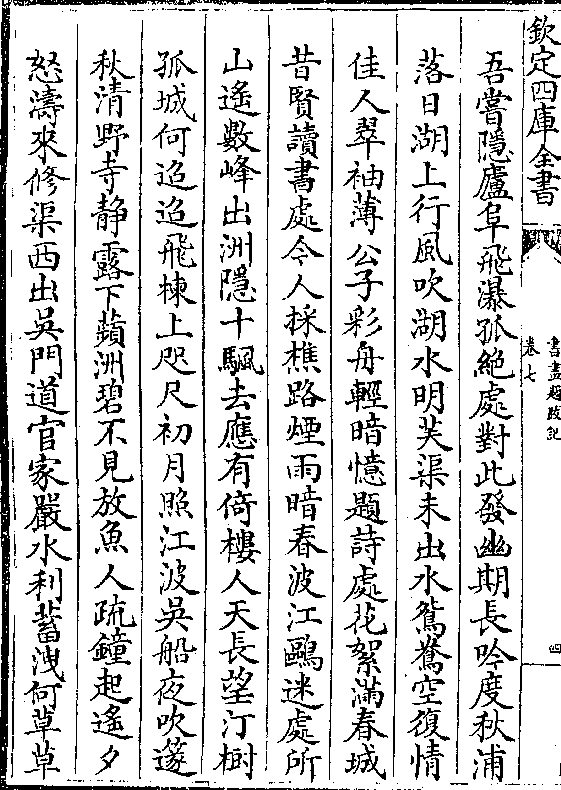 欽定四庫全書
書畫題跋記
卷七
四
吾嘗隱廬阜飛瀑孤絕處對此發幽期長吟度秋浦
落日湖上行風吹湖水明芙渠未出水鴛鴦空復情
佳人翠袖薄公子彩舟輕暗憶題詩處花絮滿春城
昔賢讀書處令人採樵路煙雨暗春波江鷗迷處所
山遙數峰出洲隱十颿去應有倚樓人天長望汀樹
孤城何迢迢飛棟上咫尺初月照江波吳船夜吹篴
秋清野寺静露下蘋洲碧不見放魚人疏鐘起遙夕
怒濤來修渠西出吳門道官家嚴水利蓄洩何草草